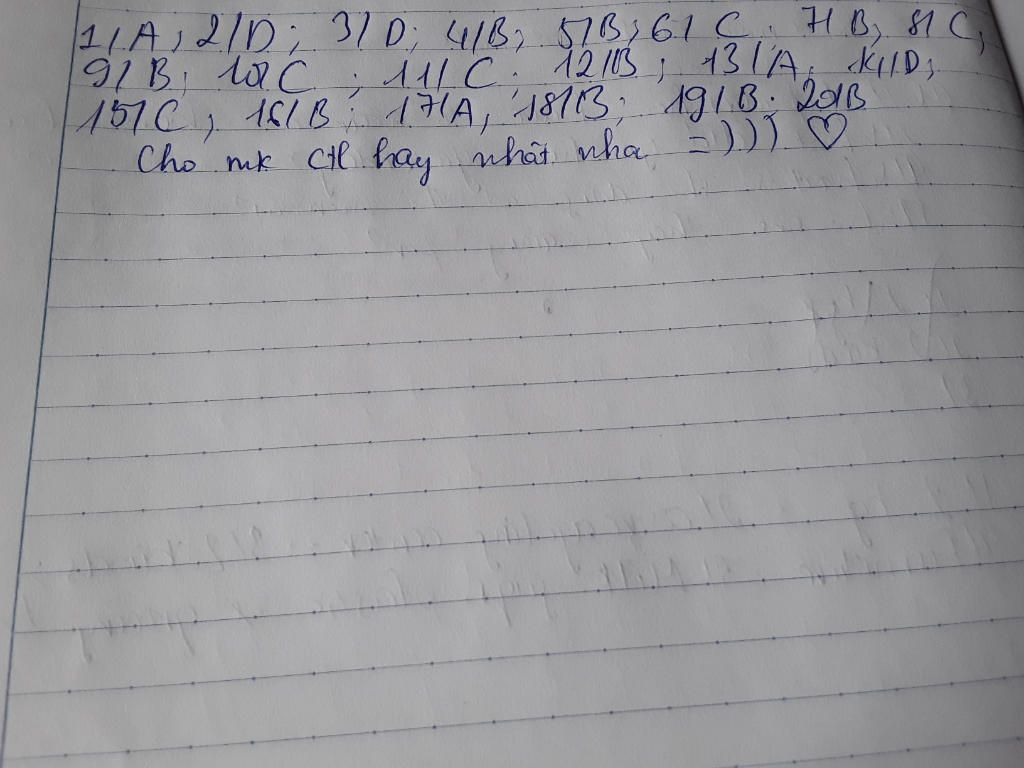 1/A; 2/D; 3/D; 4/B; 5/B; 6/C; 7/B; 8/C;
9/B; 10/C; 11/C; 12/B; 13/A; 14/D;
15/C; 16/B; 17/A; 18/B; 19/B; 20/B
Cho mk ctl hay nhất nha =))) ♡